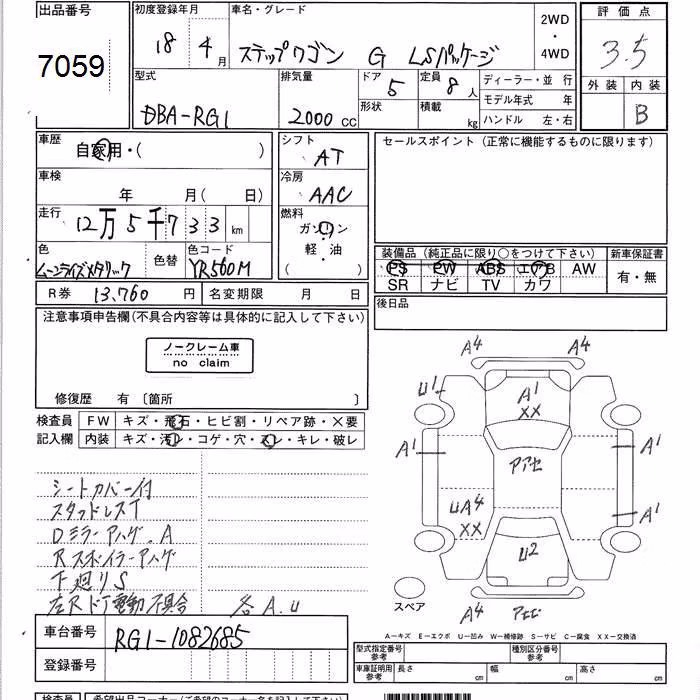 出品番号 初度登録年月 車名・グレード 2WD・4WD 評価点
7059 18年 4月 ステップワゴン G LSパッケージ 3.5
外装 内装
B
型式 排気量 ドア 5 定員 8人 ディーラー・並 行
モデル年式 年
DBA-RG1 2000cc 形状 積載 kg ハンドル 左・右
車歴 シフト セールスポイント (正常に機能するものに限ります)
自家用・( ) AT
車検 冷房
年 月( 日) AAC
走行 12万5千733km 燃料
ガソリン
軽・油
( )
色 色替 色コード
ムーンライズメタリック YR560M
装備品 (純正品に限り○をつけて下さい) 新車保証書
PS PW ABS エアB AW 有・無
SR ナビ TV カワ
R券 13,760円 名変期限 月 日
後日品
注意事項申告欄(不具合内容等は具体的に記入して下さい)
ノークレーム車
no claim
修復歴 有 〔箇所 〕
検査員 FW キズ・飛石・ヒビ割・リペア跡・X要
記入欄 内装 キズ・汚レ・コゲ・穴・スレ・キレ・破レ
シートカバー付
スタッドレスT
Dミラーアハゲ.A
Rスポイラーアハゲ
下廻りS
左Rドア電動不具合 各A.U
A4 A4
U1 A1
XX
A1 A1
アアセ
UA4
XX A1
U2
スペア
A4
A-キズ E-エクボ U-凹み W-補修跡 S-サビ C-腐食 XX-交換済
車台番号 RG1-1082685
登録番号
型式指定番号 参考 種別区分番号 参考
車庫証明用 参考 長さ cm 幅 cm 高さ cm
検査員 希望出品コーナー(ご希望のコーナー名を記入下さい)